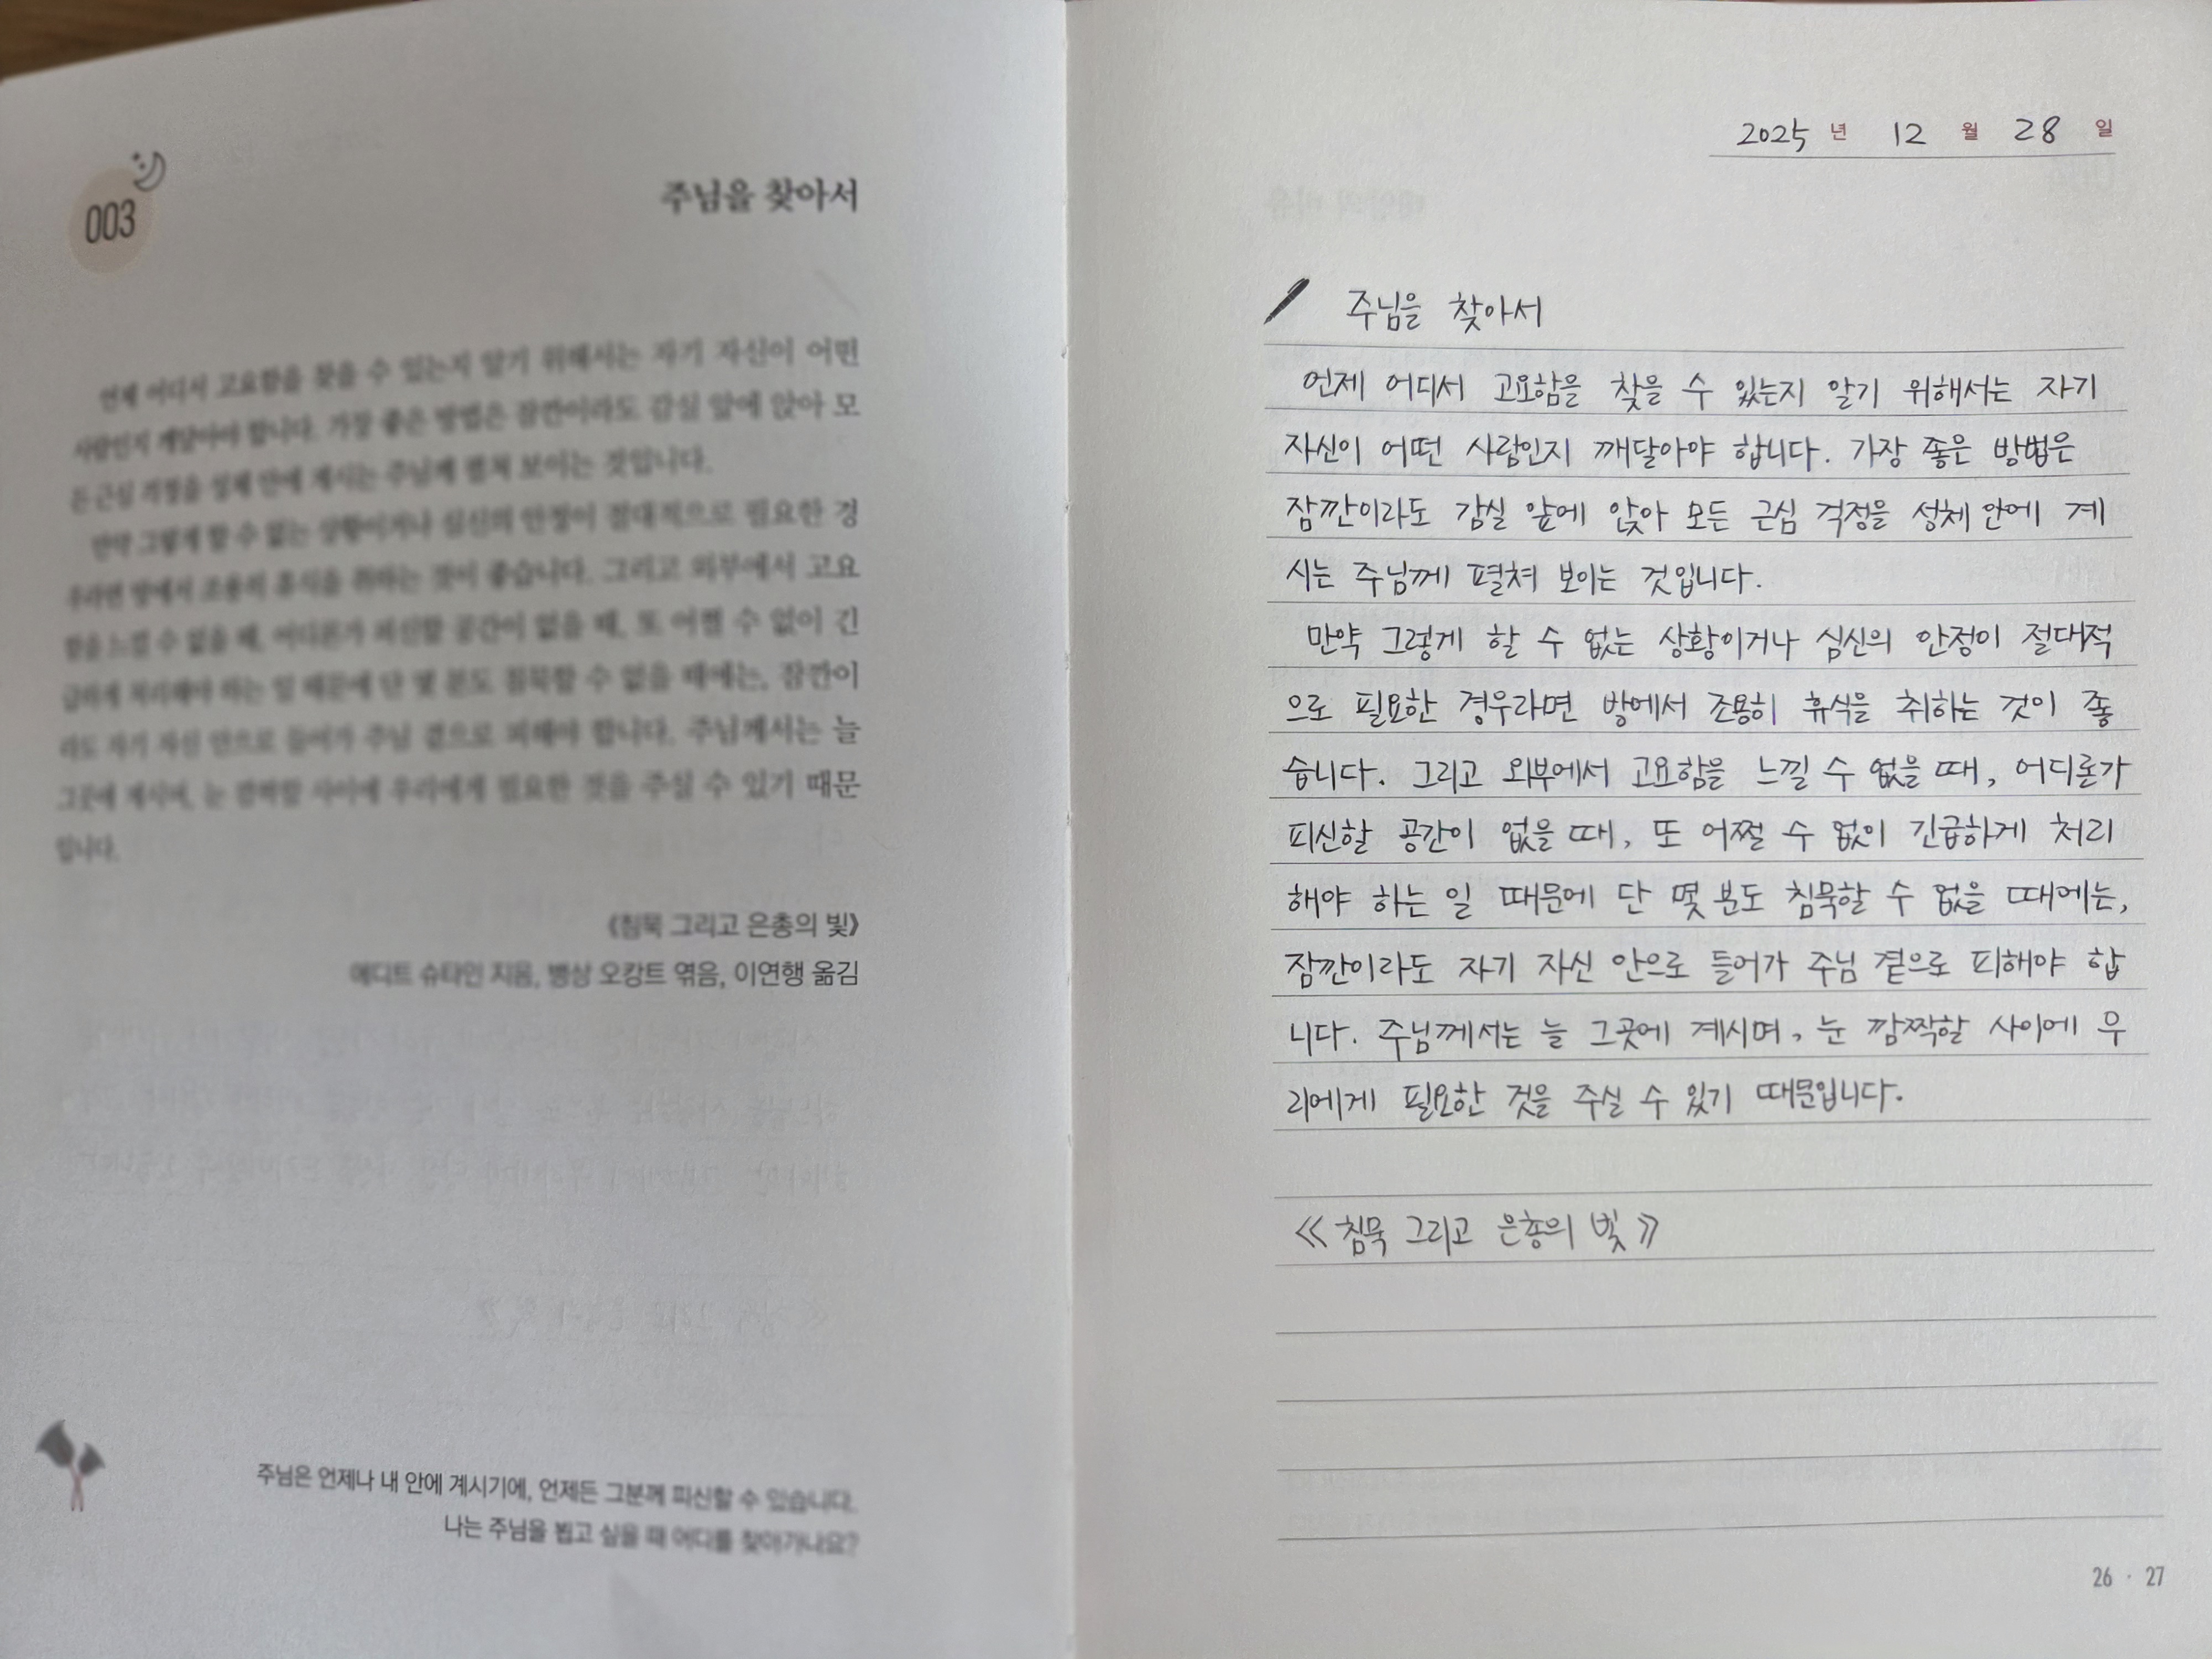 003
주님을 찾아서
언제 어디서 고요함을 찾을 수 있는지 알기 위해서는 자기 자신이 어떤
사람인지 깨달아야 합니다. 가장 좋은 방법은 잠깐이라도 감실 앞에 앉아 모
든 근심 걱정을 성체 안에 계시는 주님께 펼쳐 보이는 것입니다.
만약 그렇게 할 수 없는 상황이거나 심신의 안정이 절대적으로 필요한 경
우라면 방에서 조용히 휴식을 취하는 것이 좋습니다. 그리고 외부에서 고요
함을 느낄 수 없을 때, 어디론가 피신할 공간이 없을 때, 또 어쩔 수 없이 긴
급하게 처리해야 하는 일 때문에 단 몇 분도 침묵할 수 없을 때에는, 잠깐이
라도 자기 자신 안으로 들어가 주님 곁으로 피해야 합니다. 주님께서는 늘
그곳에 계시며, 눈 깜짝할 사이에 우리에게 필요한 것을 주실 수 있기 때문
입니다.
《침묵 그리고 은총의 빛》
에디트 슈타인 지음, 뱅상 오캉트 엮음, 이연행 옮김
주님은 언제나 내 안에 계시기에, 언제든 그분께 피신할 수 있습니다.
나는 주님을 뵙고 싶을 때 어디를 찾아가나요?
2025 년 12 월 28 일
주님을 찾아서
언제 어디서 고요함을 찾을 수 있는지 알기 위해서는 자기
자신이 어떤 사람인지 깨달아야 합니다. 가장 좋은 방법은
잠깐이라도 감실 앞에 앉아 모든 근심 걱정을 성체 안에 계
시는 주님께 펼쳐 보이는 것입니다.
만약 그렇게 할 수 없는 상황이거나 심신의 안정이 절대적
으로 필요한 경우라면 방에서 조용히 휴식을 취하는 것이 좋
습니다. 그리고 외부에서 고요함을 느낄 수 없을 때, 어디론가
피신할 공간이 없을 때, 또 어쩔 수 없이 긴급하게 처리
해야 하는 일 때문에 단 몇 분도 침묵할 수 없을 때에는,
잠깐이라도 자기 자신 안으로 들어가 주님 곁으로 피해야 합
니다. 주님께서는 늘 그곳에 계시며, 눈 깜짝할 사이에 우
리에게 필요한 것을 주실 수 있기 때문입니다.
《 침묵 그리고 은총의 빛 》
26 · 27